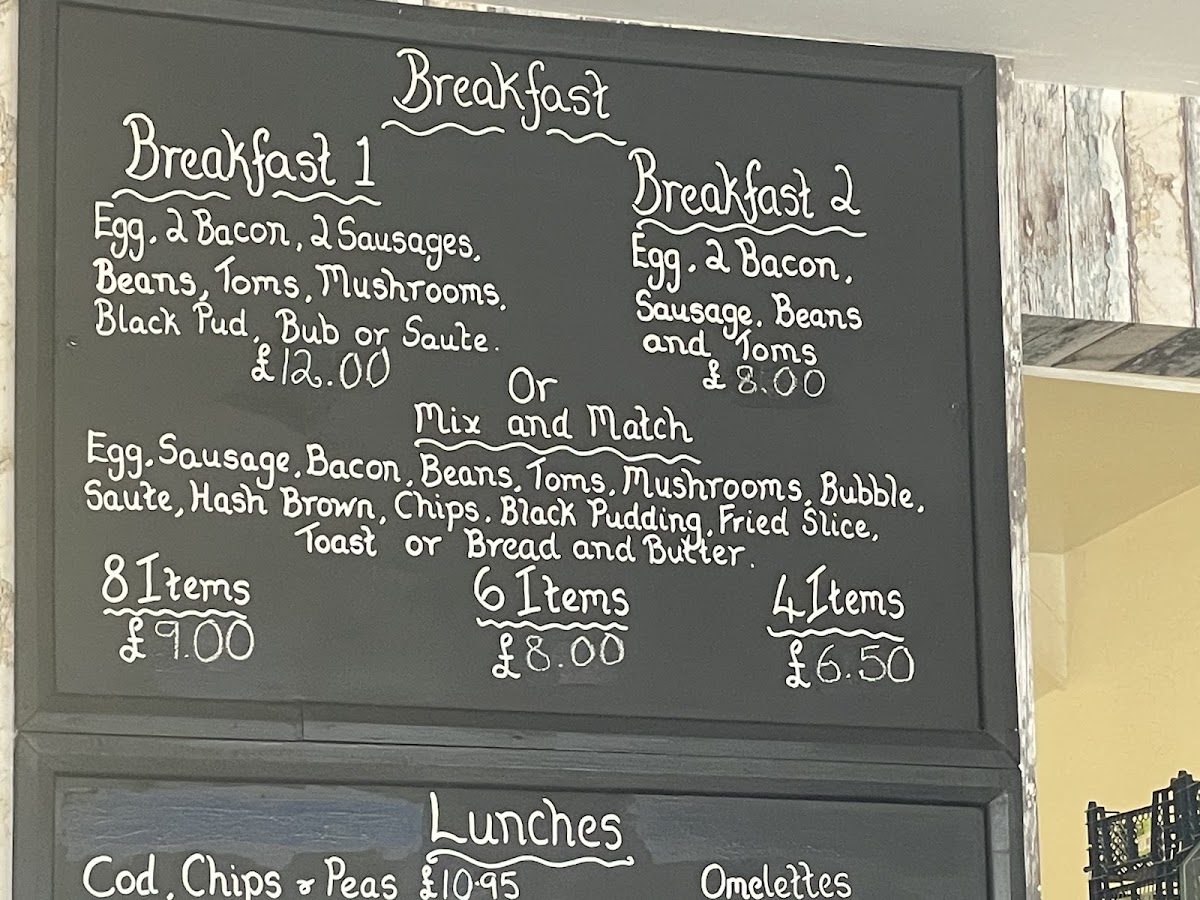 Breakfast
Breakfast 1
Egg, 2 Bacon, 2 Sausages,
Beans, Toms, Mushrooms,
Black Pud, Bub or Saute.
£12.00
Breakfast 2
Egg, 2 Bacon,
Sausage, Beans
and Toms
£8.00
Or
Mix and Match
Egg, Sausage, Bacon, Beans, Toms, Mushrooms, Bubble,
Saute, Hash Brown, Chips, Black Pudding, Fried Slice,
Toast or Bread and Butter.
8 Items
£9.00
6 Items
£8.00
4 Items
£6.50
Lunches
Cod, Chips & Peas £10.95
Omelettes